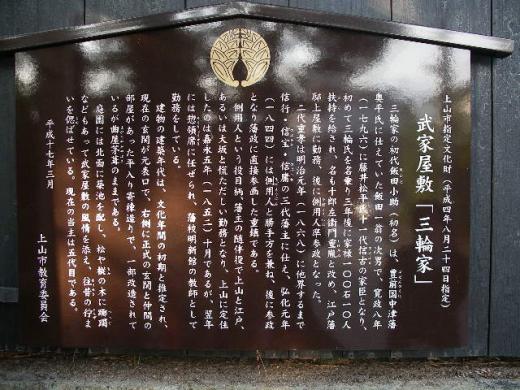 上山市指定文化財（平成四年八月二十四日指定）
武家屋敷「三輪家」
三輪家の初代飯田小助（初名）は、豊前国中津藩
奥平氏に仕えていた飯田一翁の次男で、寛政八年
（一七九六）に藤井松平家十代信古の家臣となり、
初めて三輪氏を名乗り三年後に家禄一〇〇石一〇人
扶持を給され、名も十郎左衛門重風と改め、江戸藩
邸上屋敷に勤務、後に側用人準参政となった。
二代重孝は明治元年（一八六八）に他界するまで
信行・信宝・信庸の三代藩主に仕え、弘化元年
（一八四四）には側用人と勝手方を兼ね、後に参政
となり藩政に直接参画した重鎮である。
側用人という役目柄、藩主の随伴役で上山と江戸、
あるいは大坂と慌ただしい勤務となり、上山に定住
したのは嘉永五年（一八五二）十月であるが、翌年
には惣領席に任ぜられ、藩校明新館の教師として
勤務をしている。
建物の建築年代は、文化年間の初期と推定され、
現在の玄関が元表口で、右側に正式の玄関と仲間の
部屋があった平入り寄棟造りで、一部改造されて
いるが曲屋茅葺のままである。
庭園には北面に築池を配し、松や槻の木に躑躅
などもあって武家屋敷の風情を添え、往昔の佇ま
いを偲ばせている。現在の当主は五代目である。
平成十七年三月
上山市教育委員会